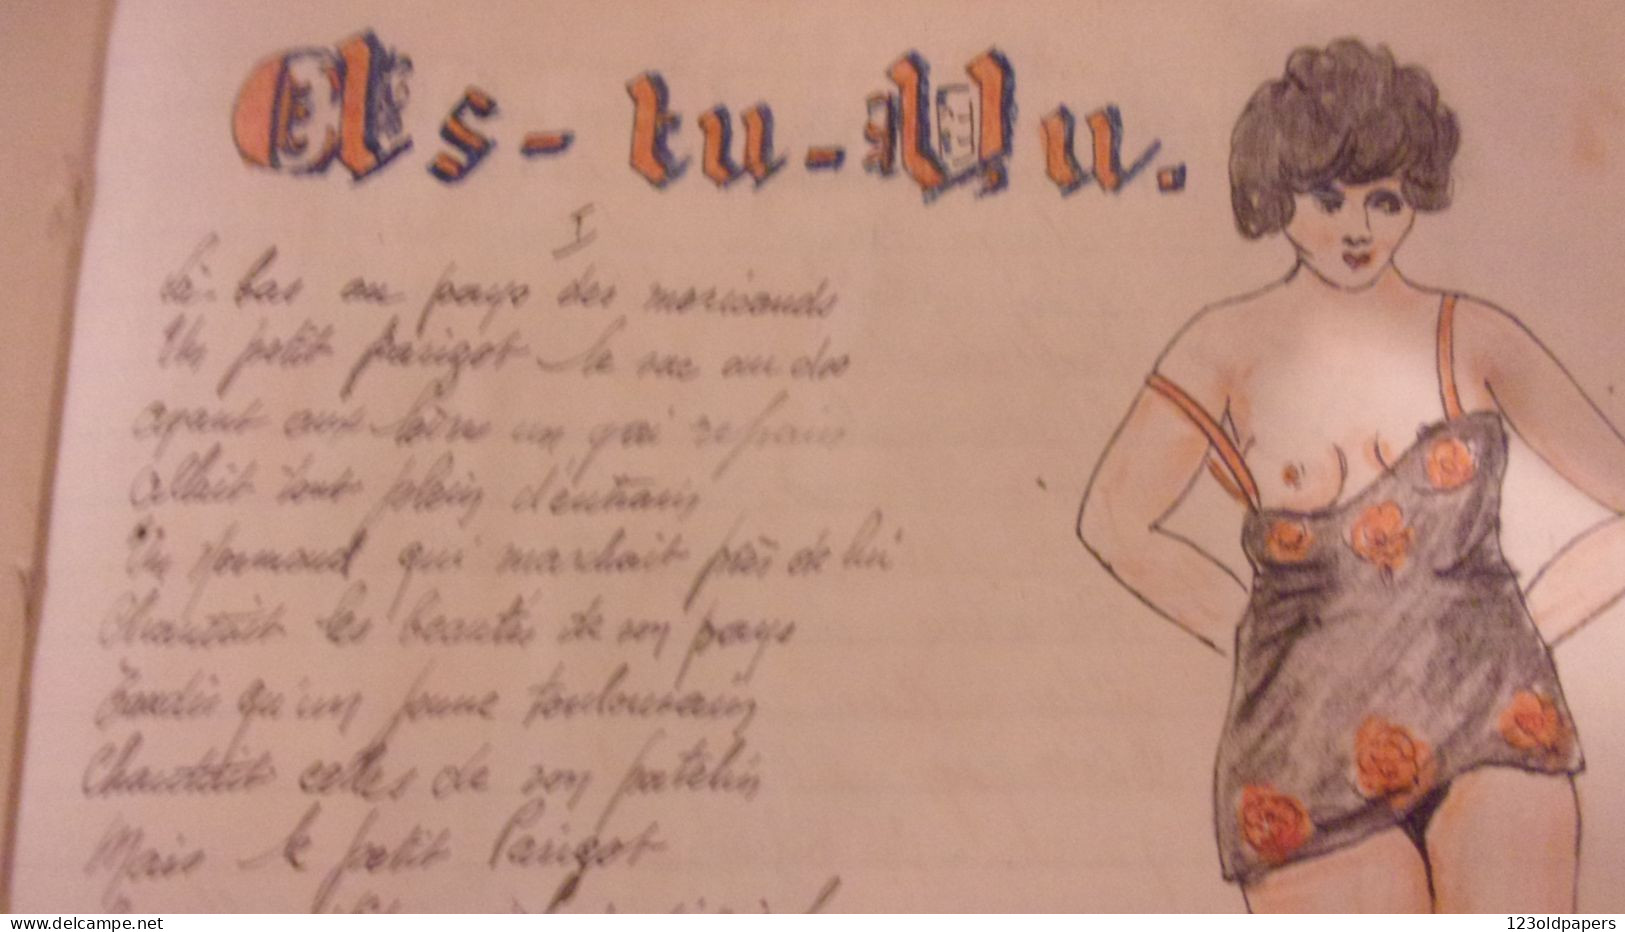 As-tu-Vu.
I
Là-bas au pays des moricauds
Un petit parigot le sac au dos
ayant aux lèvres un gai refrain
Allait tout plein d'entrain
Un Normand qui marchait près de lui
Chantait les beautés de son pays
Tandis qu'un jeune toulousain
Chantait celles de son patelin
Mais le petit Parigot
123oldpapers